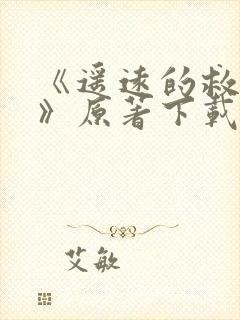 《遥远的救
》原著下载
艾敏